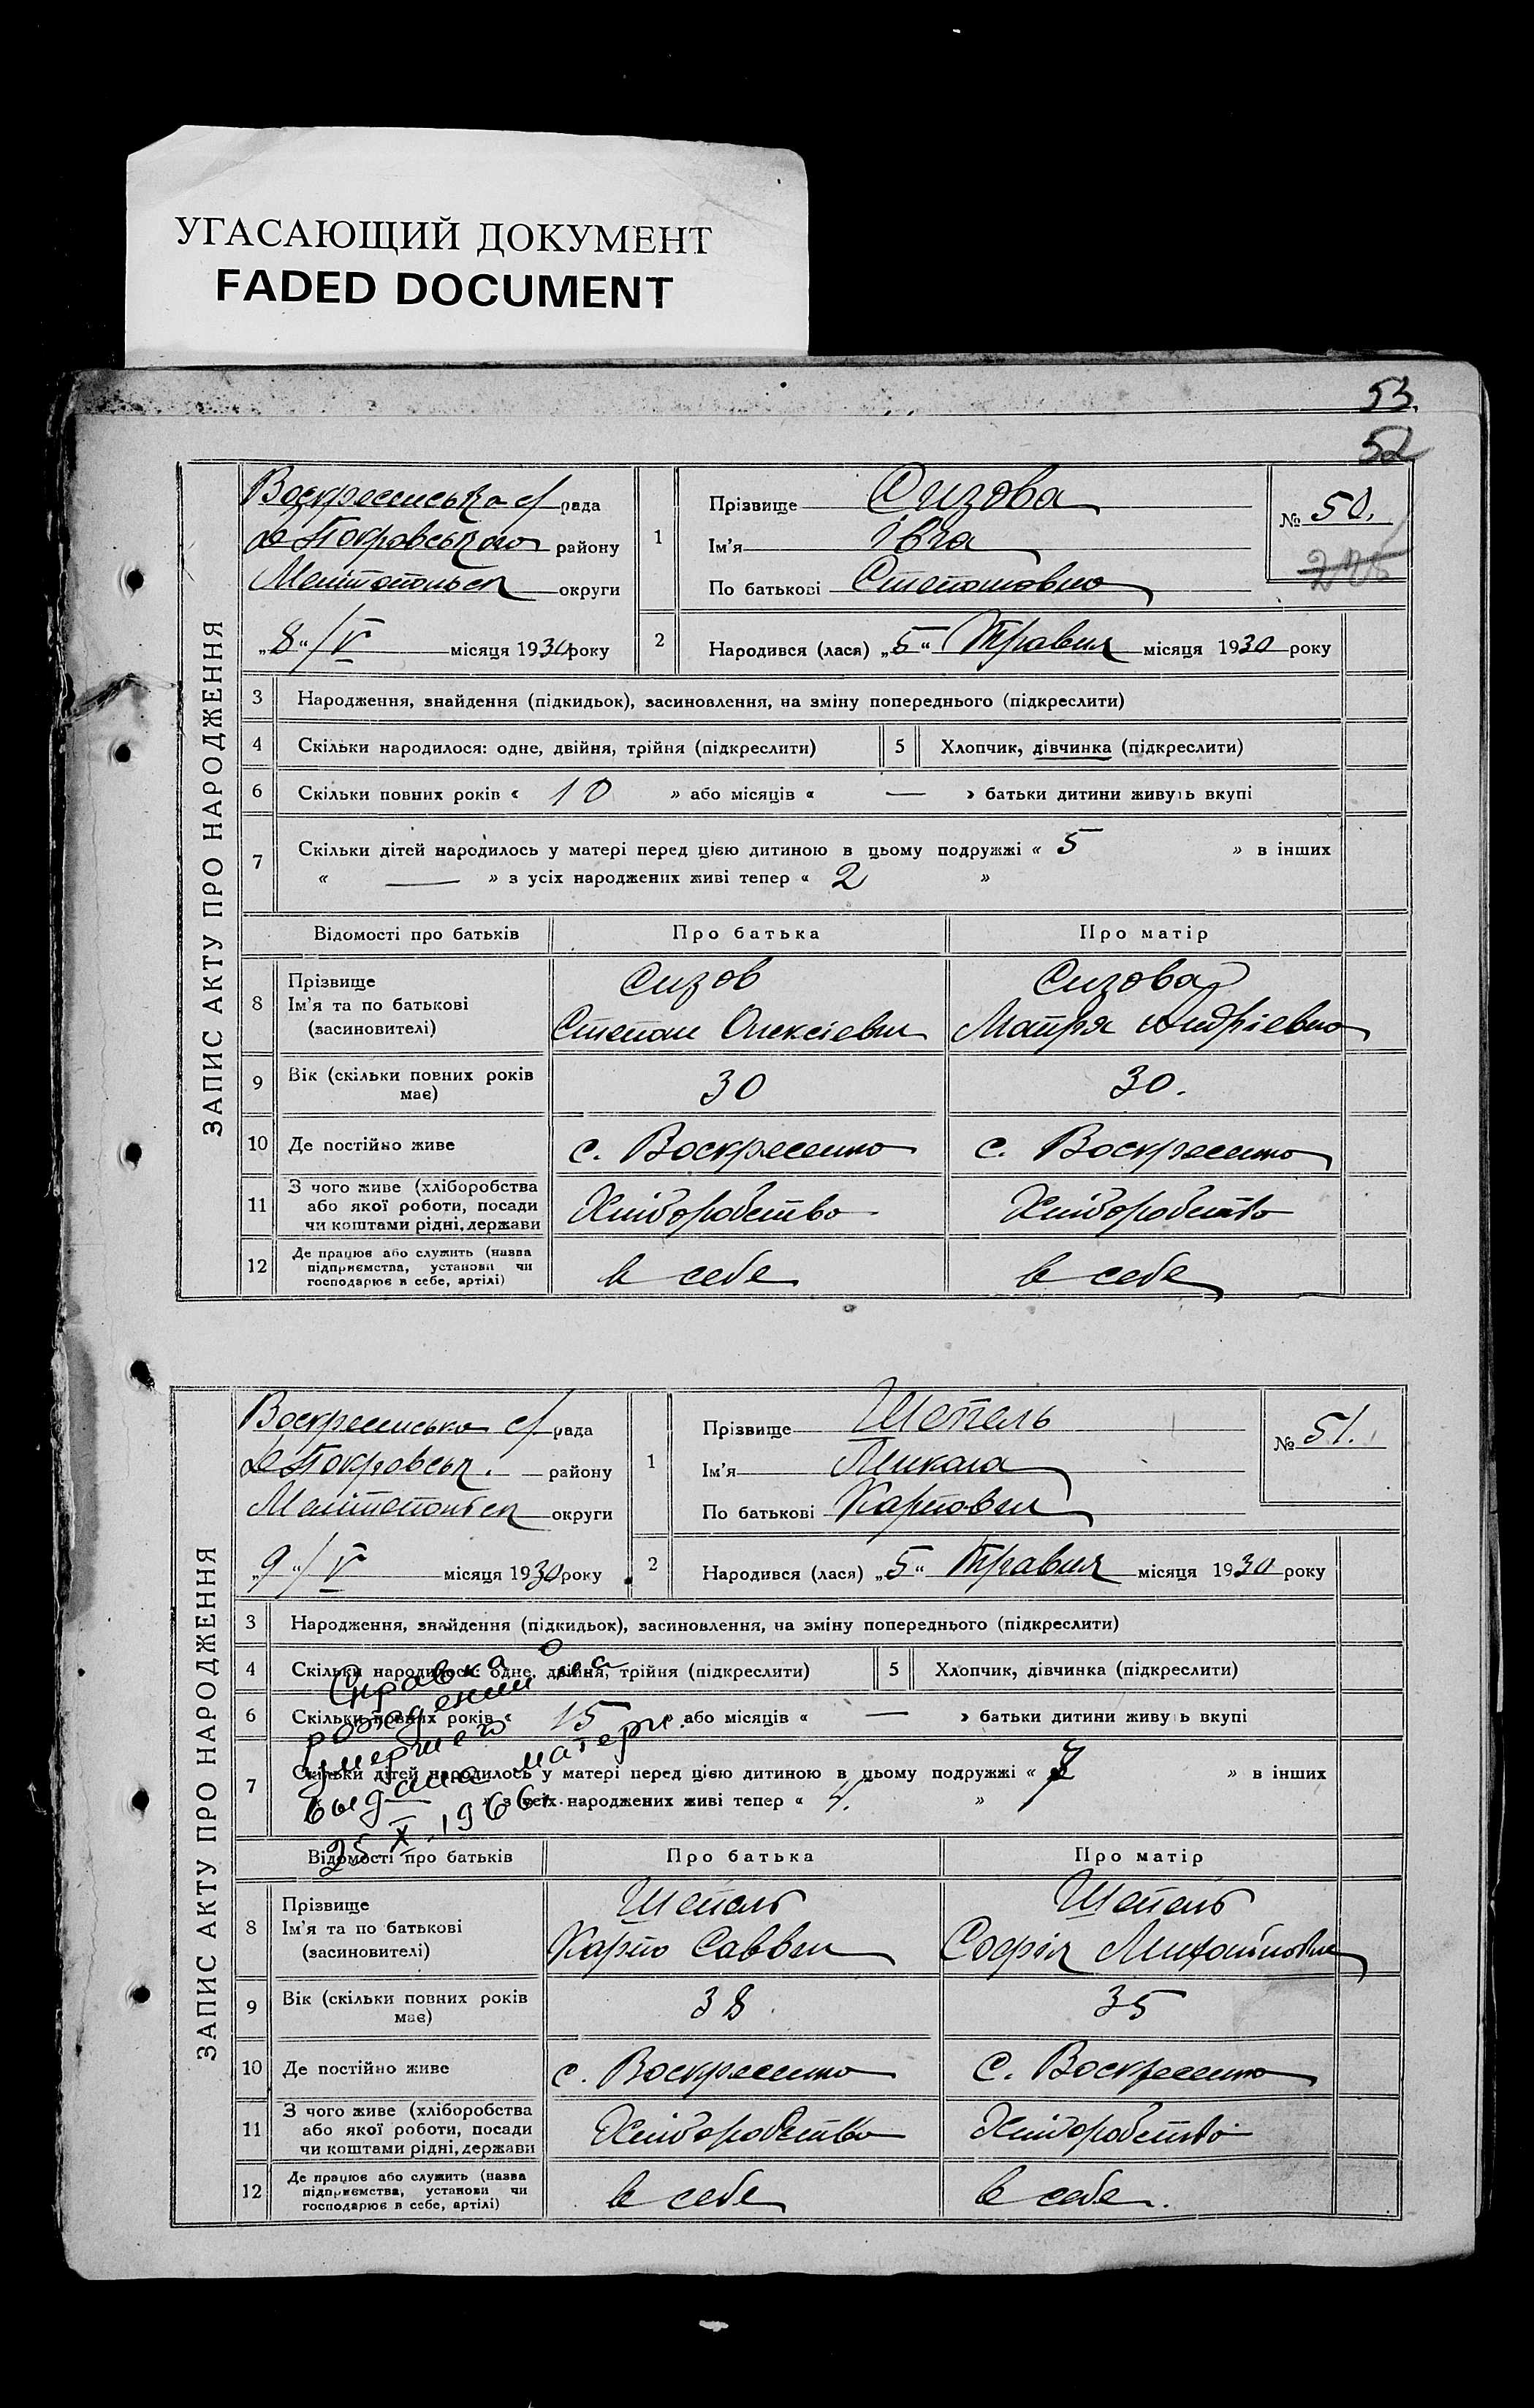 УГАСАЮЩИЙ ДОКУМЕНТ
FADED DOCUMENT
53.
52
ЗАПИС АКТУ ПРО НАРОДЖЕННЯ
Воскресенська с/рада
Покровського району
Мелітопольськ округи
„8“/V місяця 1930 року
1 Прізвище Сизова
Ім'я
По батькові Степановна
№ 50.
2 Народився (лася) „5“ Травня місяця 1930 року
3 Народження, знайдення (підкидьок), засиновлення, на зміну попереднього (підкреслити)
4 Скільки народилося: одне, двійня, трійня (підкреслити) 5 Хлопчик, дівчинка (підкреслити)
6 Скільки повних років « 10 » або місяців « — » батьки дитини живуть вкупі
7 Скільки дітей народилось у матері перед цією дитиною в цьому подружжі « 5 » в інших
« — » з усіх народжених живі тепер « 2 »
Відомості про батьків Про батька Про матір
8 Прізвище Сизов Сизова
Ім'я та по батькові
(засиновителі) Степан Олексієвич Мотря Андрієвна
9 Вік (скільки повних років має) 30 30.
10 Де постійно живе с. Воскресенка с. Воскресенка
11 З чого живе (хліборобства
або якої роботи, посади
чи коштами рідні, держави Хліборобство Хліборобство
12 Де працює або служить (назва
підприємства, установи чи
господарює в себе, артілі) в себе в себе
ЗАПИС АКТУ ПРО НАРОДЖЕННЯ
Воскресенська с/рада
Покровськ. району
Мелітопольськ округи
„9“/V місяця 1930 року
1 Прізвище Шепель
Ім'я Микола
По батькові Карпович
№ 51.
2 Народився (лася) „5“ Травня місяця 1930 року
3 Народження, знайдення (підкидьок), засиновлення, на зміну попереднього (підкреслити)
4 Скільки народилося: одне, двійня, трійня (підкреслити) 5 Хлопчик, дівчинка (підкреслити)
6 Скільки повних років « 15 » або місяців « — » батьки дитини живуть вкупі
7 Скільки дітей народилось у матері перед цією дитиною в цьому подружжі « 7 » в інших
« — » з усіх народжених живі тепер « 4. »
Справка о
рождении на
умершего
выдана матери.
25.X.1966г.
Відомості про батьків Про батька Про матір
8 Прізвище Шепель Шепель
Ім'я та по батькові
(засиновителі) Карпо Саввич Софія Михайловна
9 Вік (скільки повних років має) 38. 35
10 Де постійно живе с. Воскресенка с. Воскресенка
11 З чого живе (хліборобства
або якої роботи, посади
чи коштами рідні, держави Хліборобство Хліборобство
12 Де працює або служить (назва
підприємства, установи чи
господарює в себе, артілі) в себе в себе.